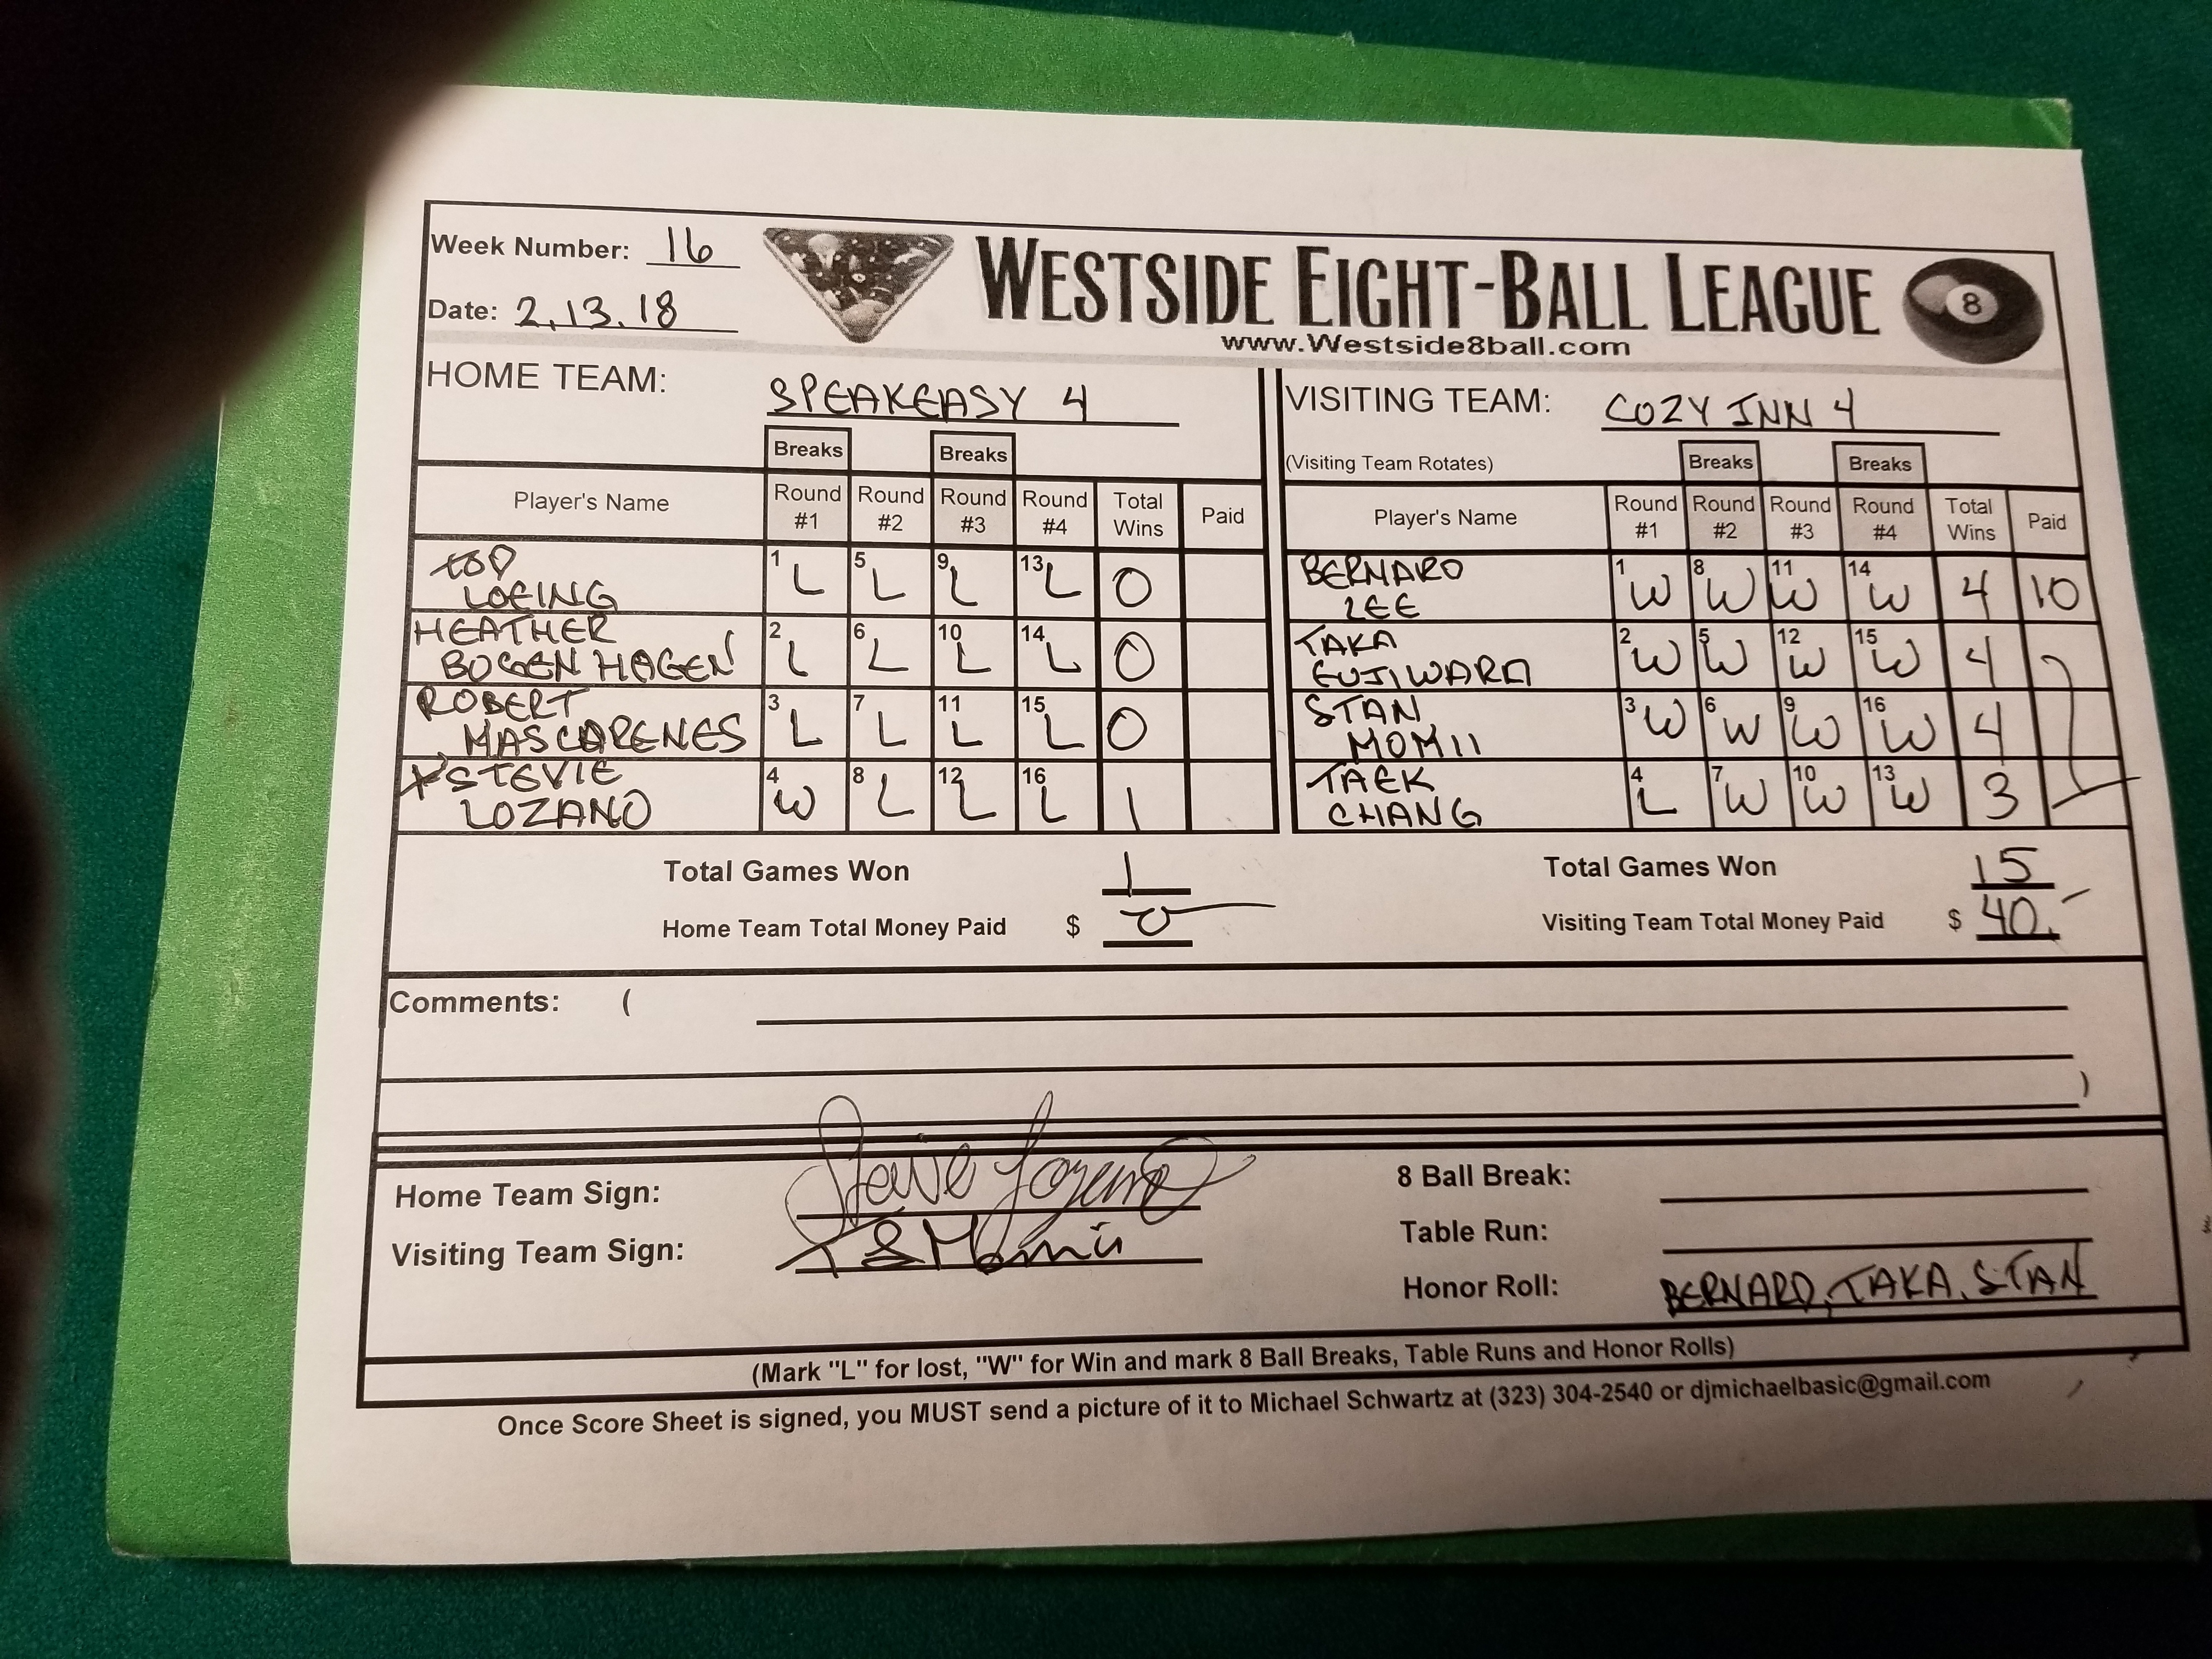 Week Number: 16
Date: 2.13.18
WESTSIDE EIGHT-BALL LEAGUE
8
www.Westside8ball.com
HOME TEAM: SPEAKEASY 4
VISITING TEAM: COZY INN 4
Breaks Breaks
(Visiting Team Rotates) Breaks Breaks
Player's Name Round #1 Round #2 Round #3 Round #4 Total Wins Paid
LOEING 1 L 5 L 9 L 13 L 0
HEATHER BOGENHAGEN 2 L 6 L 10 L 14 L 0
ROBERT MASCARENES 3 L 7 L 11 L 15 L 0
STEVIE LOZANO 4 W 8 L 12 L 16 L 1
Player's Name Round #1 Round #2 Round #3 Round #4 Total Wins Paid
BERNARD LEE 1 W 8 W 11 W 14 W 4 10
TAKA FUJIWARA 2 W 5 W 12 W 15 W 4
STAN MOMII 3 W 6 W 9 W 16 W 4
TAEK CHANG 4 L 7 W 10 W 13 W 3
Total Games Won 1
Home Team Total Money Paid $ 0
Total Games Won 15
Visiting Team Total Money Paid $ 40.-
Comments: (
)
Home Team Sign:
Visiting Team Sign: T S Momii
8 Ball Break:
Table Run:
Honor Roll: BERNARD, TAKA, STAN
(Mark "L" for lost, "W" for Win and mark 8 Ball Breaks, Table Runs and Honor Rolls)
Once Score Sheet is signed, you MUST send a picture of it to Michael Schwartz at (323) 304-2540 or djmichaelbasic@gmail.com